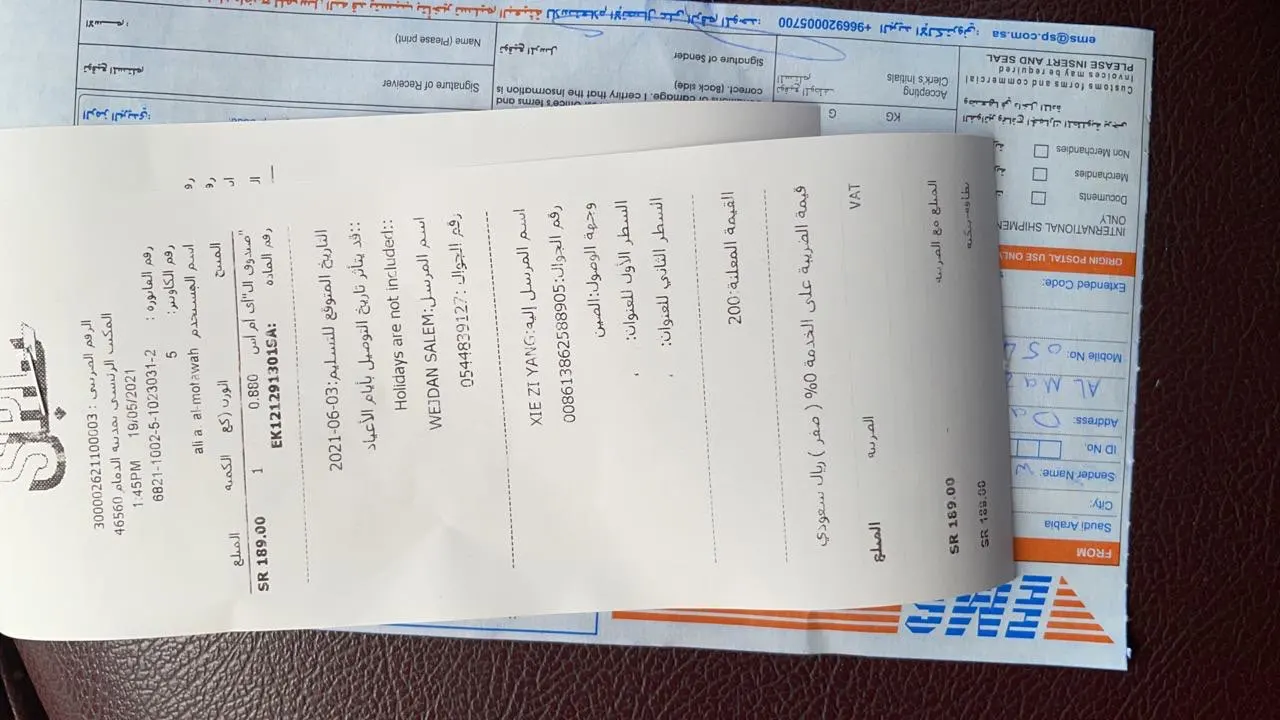 SPL
الرقم الضريبي : 300002621100003
المكتب الرئيسي بمدينة الدمام 46560
1:45PM 19/05/2021
رقم الفاتورة : 6821-1002-5-1023031-2
رقم الكاونتر: 5
اسم المستخدم ali a al-motawah
المنتج الوزن (كغ الكمية المبلغ
"صندوق ال"اي ام اس 0.880 1 SR 189.00
رقم المادة EK121291301SA:
التاريخ المتوقع للتسليم:2021-06-03
::قد يتأثر تاريخ التوصيل بأيام الأعياد
Holidays are not included::
اسم المرسل:WEJDAN SALEM
رقم الجوال :0544839127
اسم المرسل إليه:XIE ZI YANG
رقم الجوال:008613862588905
وجهة الوصول:الصين
السطر الأول للعنوان: ,
السطر الثاني للعنوان: ,
القيمة المعلنة:200
قيمة الضريبة على الخدمة 0% ( صفر ) ريال سعودي
VAT الضريبة المبلغ
المبلغ مع الضريبة SR 189.00
SR 189.00
EMS
FROM
Saudi Arabia
City:
Sender Name: W
ID No.
Address: Da
AL Naz
Mobile No: 054
Extended Code:
ORIGIN POSTAL USE ONLY
INTERNATIONAL SHIPMEN
ONLY
Documents
Merchandies
Non Merchandies
Customs forms and commercial
Invoices may be required
PLEASE INSERT AND SEAL
KG G
Accepting
Clerk's Initials
terms and
correct. (Back side)
I certify that the information is
Signature of Sender
توقيع المرسل
Signature of Receiver
توقيع المستلم
Name (Please print)
الاسم:
الرمز البريدي:
+966920005700
البريد الإلكتروني: ems@sp.com.sa